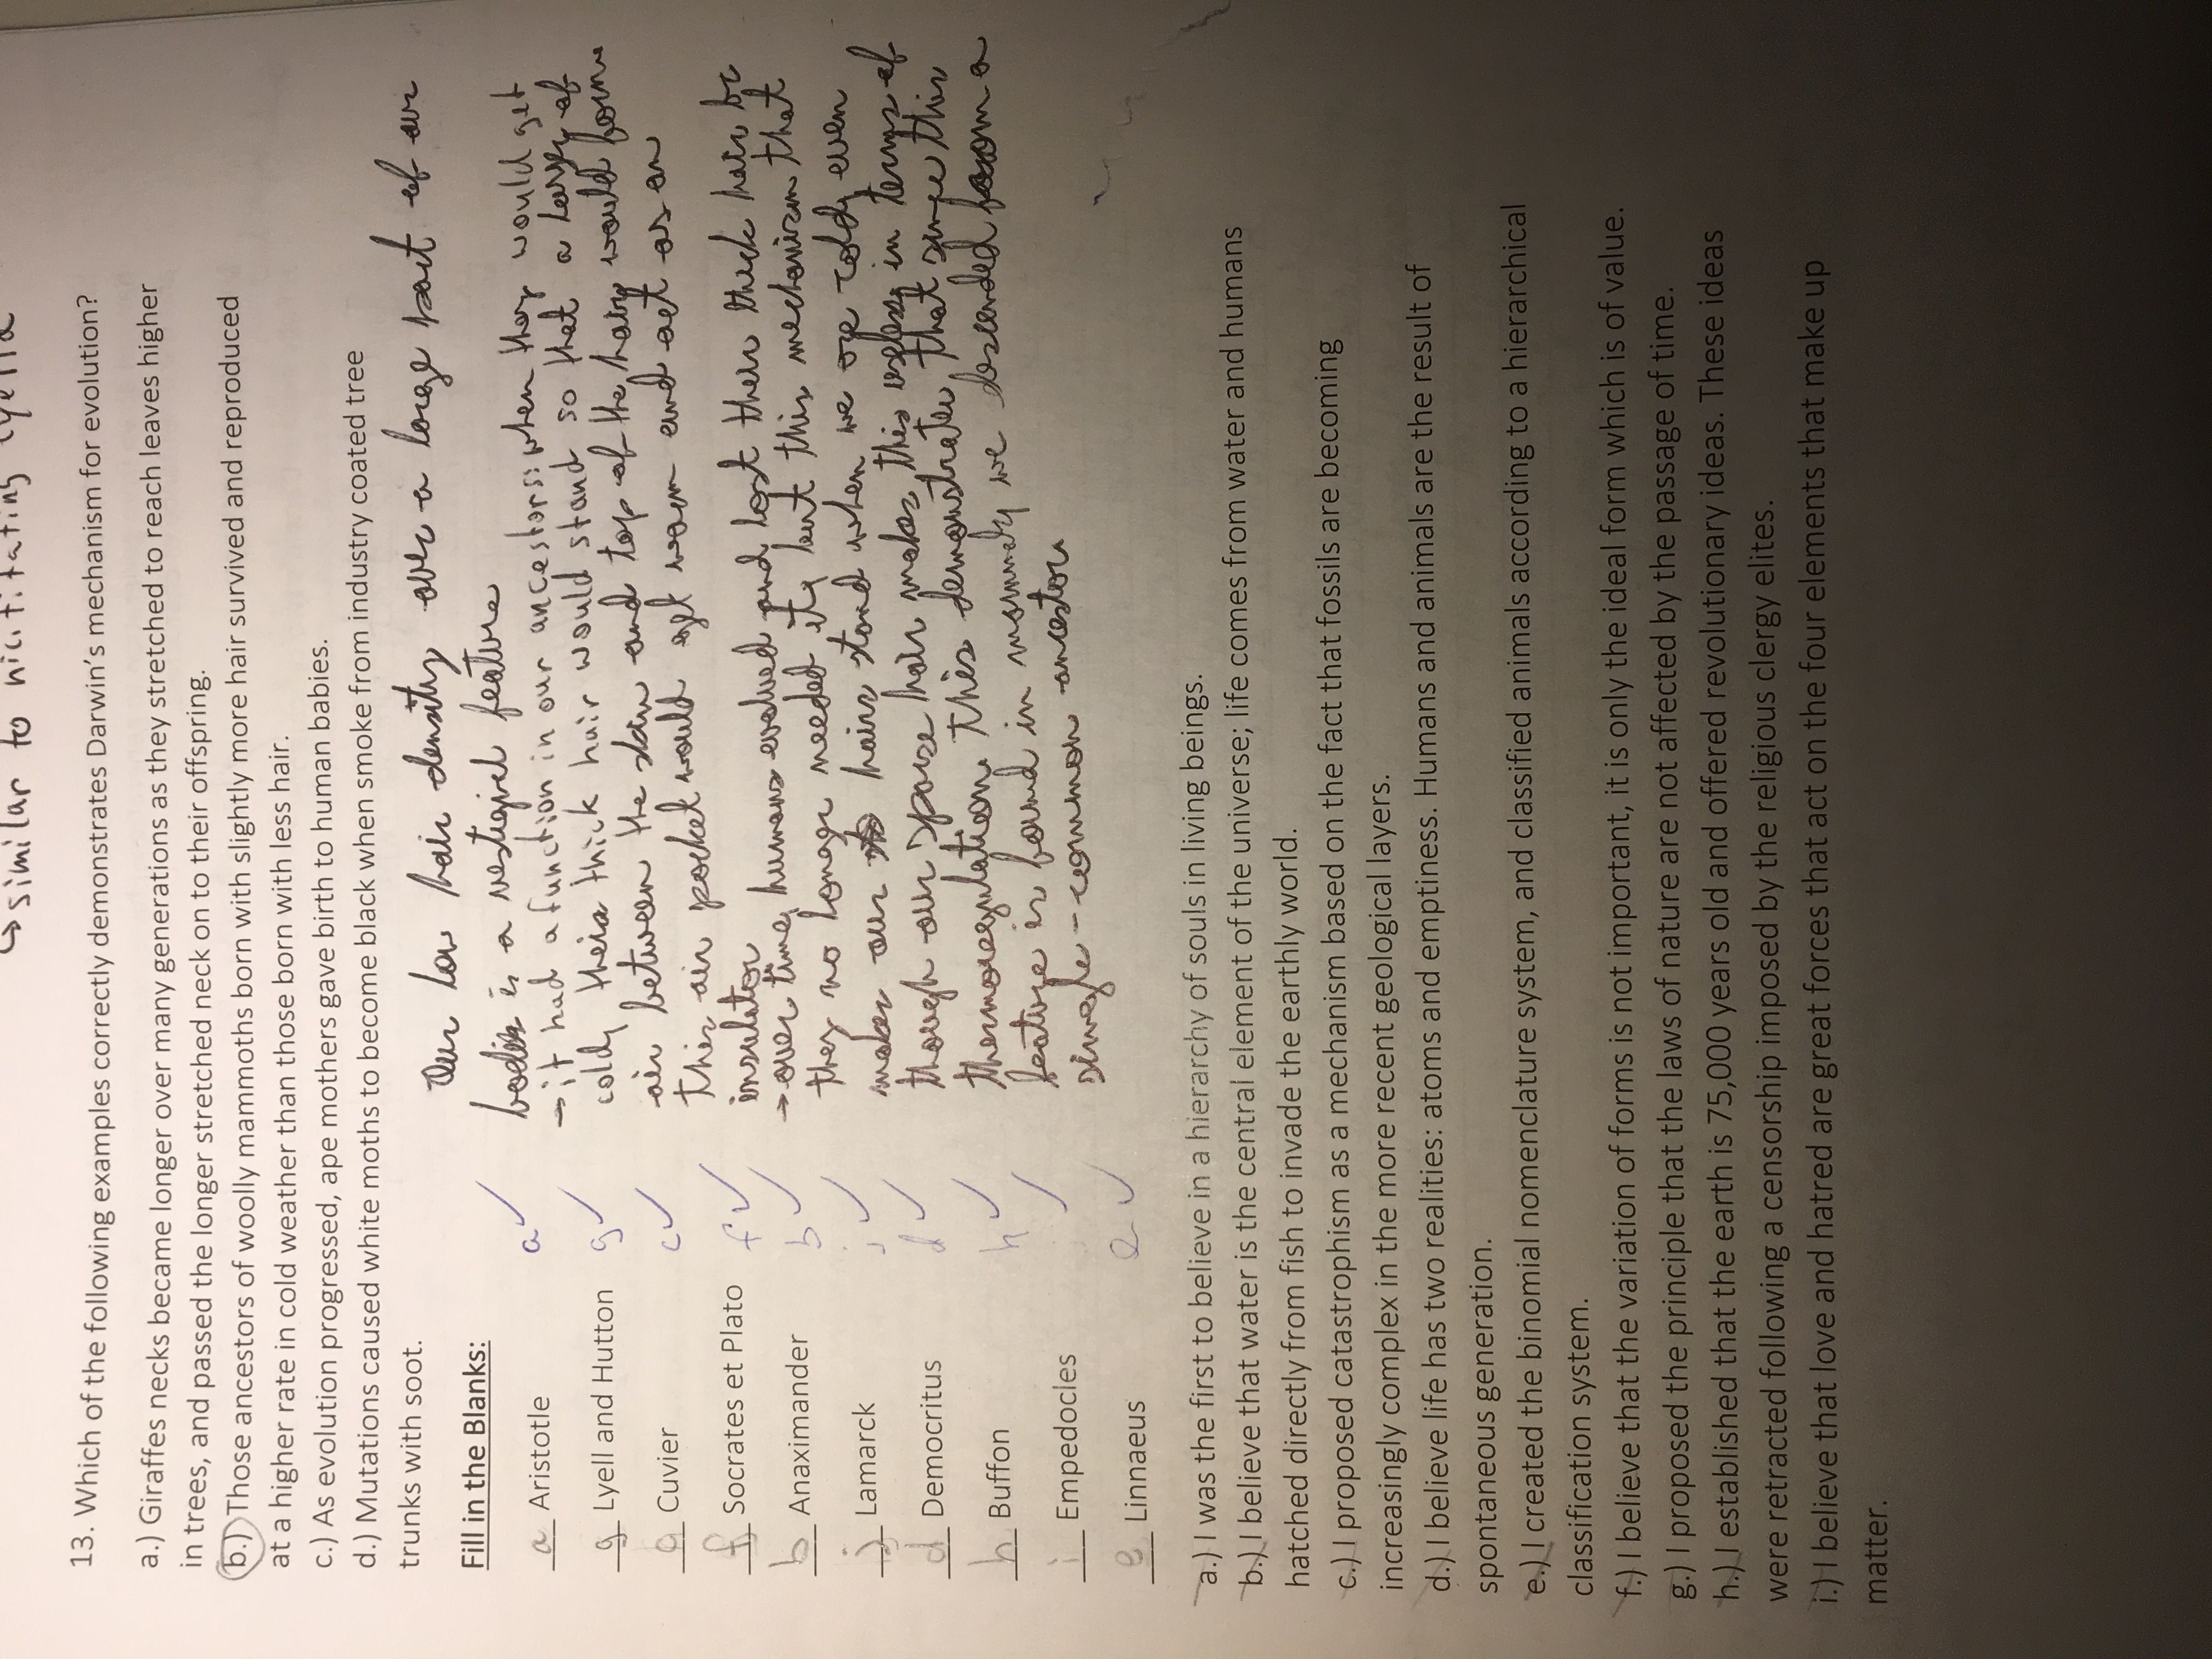 ↳ similar to nictitating
13. Which of the following examples correctly demonstrates Darwin's mechanism for evolution?
a.) Giraffes necks became longer over many generations as they stretched to reach leaves higher
in trees, and passed the longer stretched neck on to their offspring.
b.) Those ancestors of woolly mammoths born with slightly more hair survived and reproduced
at a higher rate in cold weather than those born with less hair.
c.) As evolution progressed, ape mothers gave birth to human babies.
d.) Mutations caused white moths to become black when smoke from industry coated tree
trunks with soot.
Our low hair density over a large part of our
bodies is a vestigial feature
→ it had a function in our ancestors: when they would get
cold, their thick hair would stand so that a layer of
air between the skin and top of the hairs would form
this air pocket would get warm and act as an
insulator
→ over time, humans evolved and lost their thick hair bc
they no longer needed it, but this mechanism that
makes our hairs stand when we are cold, even
though our sparse hair makes this useless in terms of
thermoregulation. This demonstrates that since this
feature is found in we descended from a
single-common ancestor
Fill in the Blanks:
a Aristotle a ✓
g Lyell and Hutton g ✓
c Cuvier c ✓
f Socrates et Plato f ✓
b Anaximander b ✓
j Lamarck j ✓
d Democritus d ✓
h Buffon h ✓
i Empedocles i ✓
e Linnaeus e ✓
a.) I was the first to believe in a hierarchy of souls in living beings.
b.) I believe that water is the central element of the universe; life comes from water and humans
hatched directly from fish to invade the earthly world.
c.) I proposed catastrophism as a mechanism based on the fact that fossils are becoming
increasingly complex in the more recent geological layers.
d.) I believe life has two realities: atoms and emptiness. Humans and animals are the result of
spontaneous generation.
e.) I created the binomial nomenclature system, and classified animals according to a hierarchical
classification system.
f.) I believe that the variation of forms is not important, it is only the ideal form which is of value.
g.) I proposed the principle that the laws of nature are not affected by the passage of time.
h.) I established that the earth is 75,000 years old and offered revolutionary ideas. These ideas
were retracted following a censorship imposed by the religious clergy elites.
i.) I believe that love and hatred are great forces that act on the four elements that make up
matter.